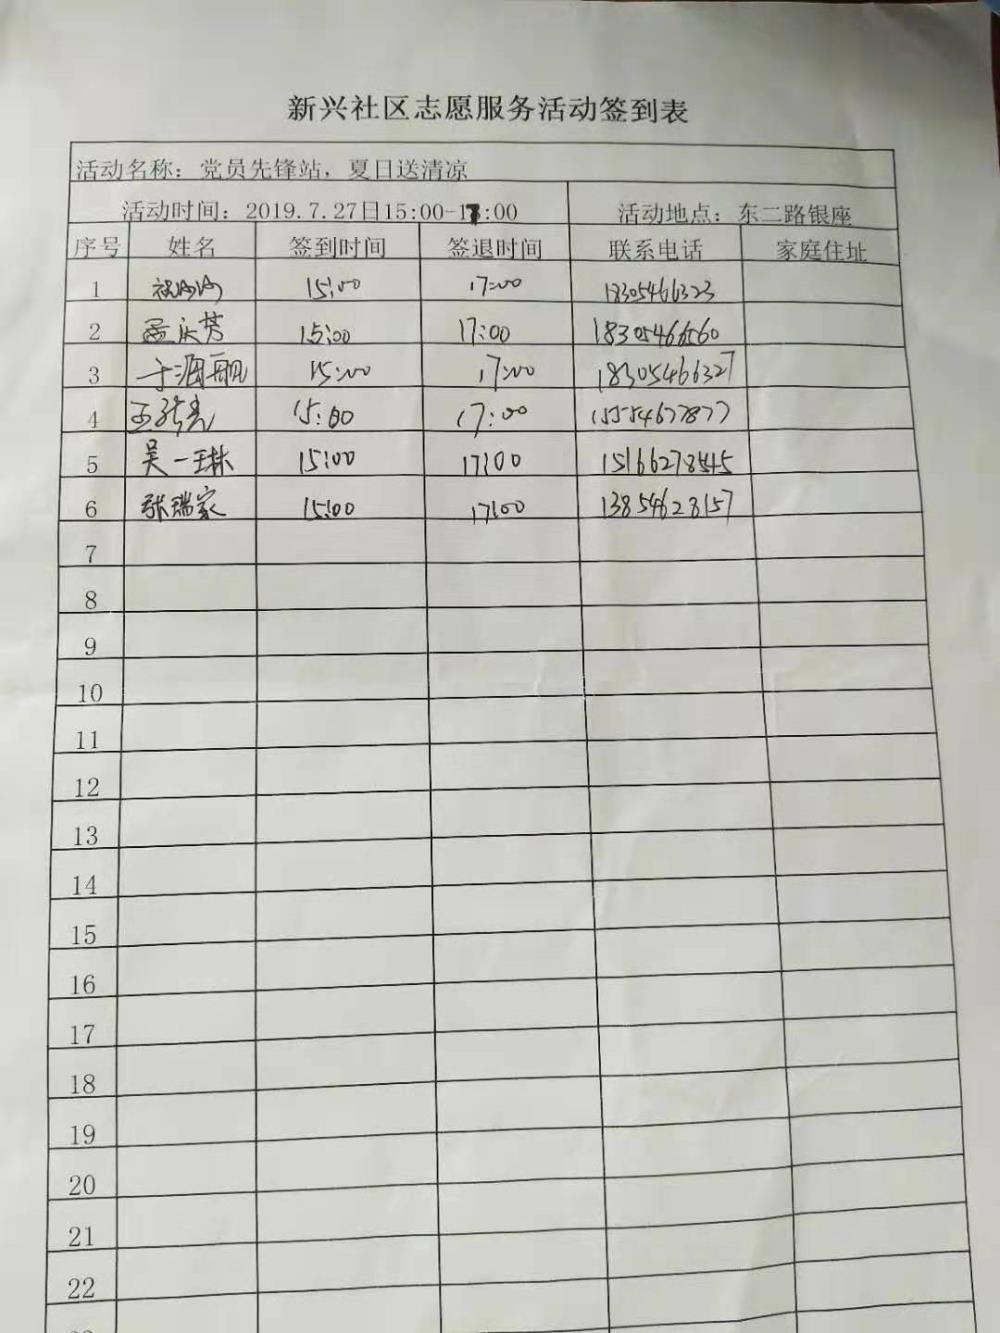 新兴社区志愿服务活动签到表
活动名称：党员先锋站，夏日送清凉
活动时间：2019.7.27日15:00-17:00 活动地点：东二路银座
序号 姓名 签到时间 签退时间 联系电话 家庭住址
1 15:00 17:00 18305466323
2 孟庆芳 15:00 17:00 18305466560
3 于海舰 15:00 17:00 18305466327
4 15:00 17:00 15554677877
5 吴一琳 15:00 17:00 15166278545
6 张瑞家 15:00 17:00 13854628157
7
8
9
10
11
12
13
14
15
16
17
18
19
20
21
22